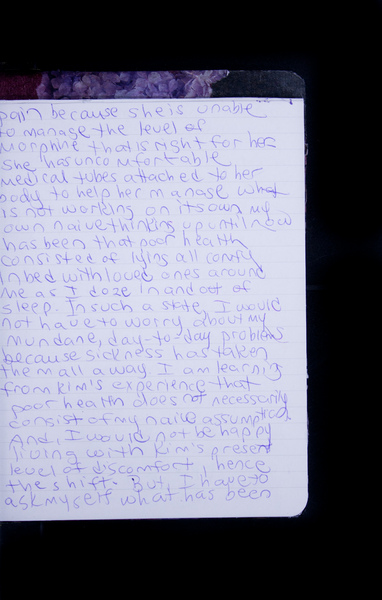 pain because she is unable
to manage the level of
morphine that is right for her
She has uncomfortable
medical tubes attached to her
body to help her manage what
is not working on its own. My
own naive thinking up until now
has been that poor health
consisted of lying all comfy
in bed with loved ones around
me as I doze in and out of
sleep. In such a state, I would
not have to worry about my
mundane, day-to-day problems
because sickness has taken
them all away. I am learning
from Kim's experience that
poor health does not necessarily
consist of my naive assumption.
And, I would not be happy
living with Kim's present
level of discomfort, hence
the shift. But, I have to
ask myself what has been